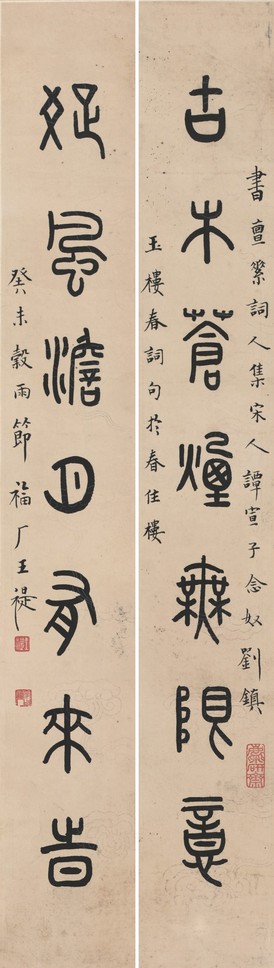 古木蒼煙無限意
書亶詞人集宋人譚宣子念奴劉鎮
玉樓春詞句於春住樓
好風澹月有來旹
癸未穀雨節福厂王禔